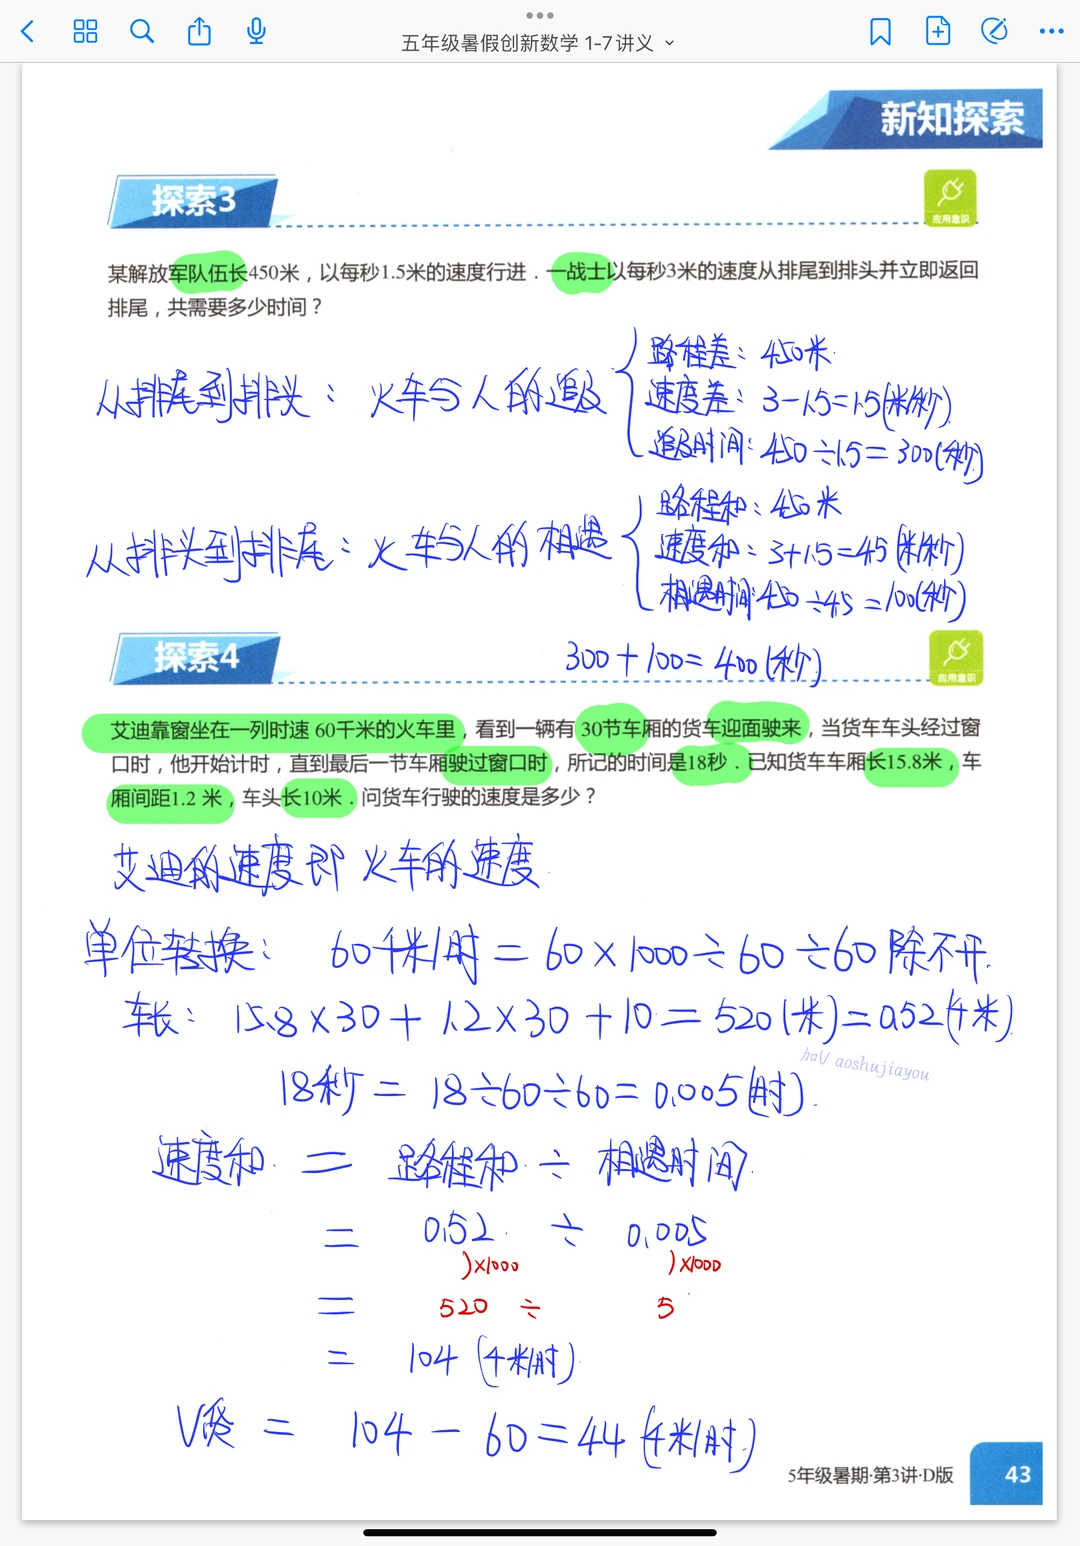 五年级暑假创新数学 1-7讲义
新知探索
探索3
应用意识
某解放军队伍长450米，以每秒1.5米的速度行进．一战士以每秒3米的速度从排尾到排头并立即返回
排尾，共需要多少时间？
从排尾到排头：火车与人的追及
路程差：450米
速度差：3-1.5=1.5(米/秒)
追及时间：450÷1.5=300(秒)
从排头到排尾：火车与人的相遇
路程和：450米
速度和：3+1.5=4.5(米/秒)
相遇时间：450÷4.5=100(秒)
300+100=400(秒)
探索4
应用意识
艾迪靠窗坐在一列时速 60千米的火车里，看到一辆有 30节车厢的货车迎面驶来，当货车车头经过窗
口时，他开始计时，直到最后一节车厢驶过窗口时，所记的时间是18秒．已知货车车厢长15.8米，车
厢间距1.2 米，车头长10米．问货车行驶的速度是多少？
艾迪的速度即火车的速度
单位转换：60千米/时=60×1000÷60÷60除不开.
车长：15.8×30+1.2×30+10=520(米)=0.52(千米)
加V aoshujiayou
18秒=18÷60÷60=0.005(时).
速度和=路程和÷相遇时间
=0.52÷0.005
)×1000 )×1000
=520÷5
=104(千米/时)
V货=104-60=44(千米/时)
5年级暑期·第3讲·D版
43